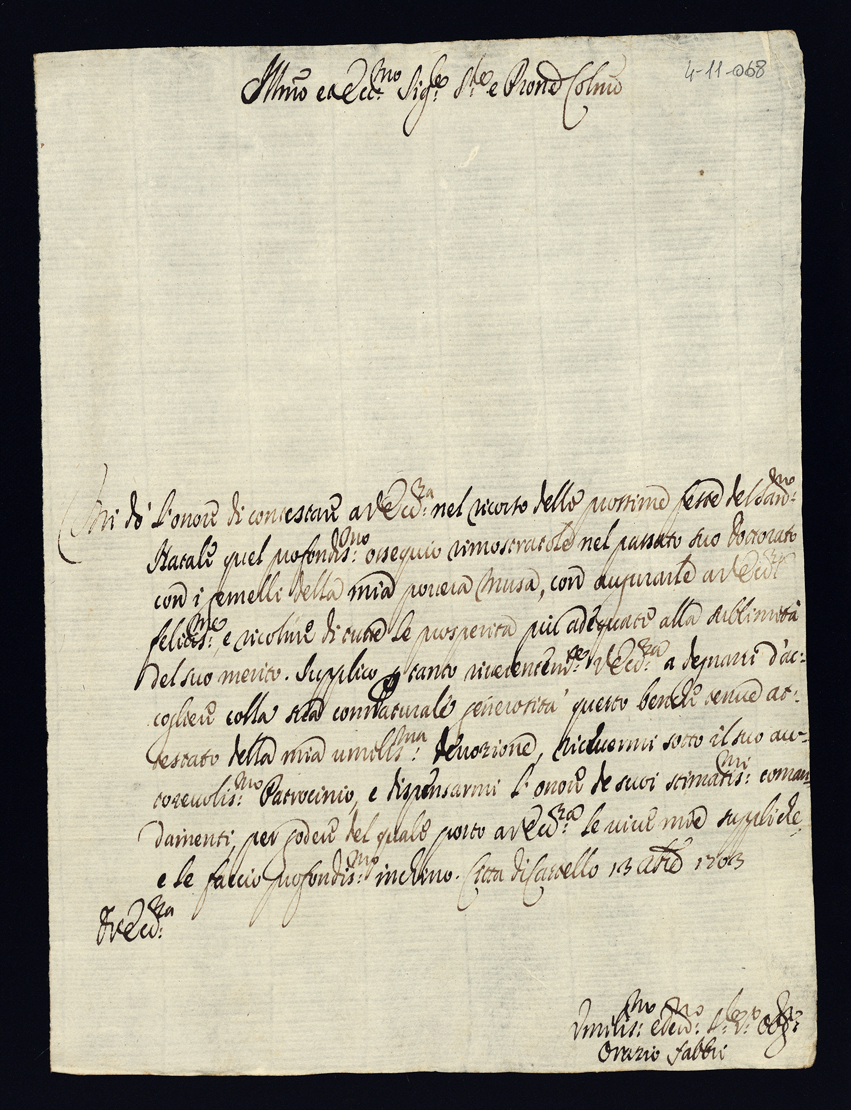 Illmo ed Ecc.mo Sig.re S.re e Prone Colmo
4-11-068
Mi dò l'onore di contestare a V.Ecc.za nel ricorso delle prossime feste del San.mo
Natale quel profondis.mo ossequio rimostratole nel passato suo Dottorato
con i gemelli della mia povera Musa, con augurarle a V.Ecc.za
felicis.me e ricolme di tutte le prosperità più adequate alla sublimità
del suo merito. Supplico p tanto riverentem.te V.Ecc.za a degnarsi d'ac-
cogliere colla sua connaturale generosità questo benche tenue at-
testato della mia umiliss.ma devozione, riceuermi sotto il suo au-
toreuolis.mo Patrocinio, e dispensarmi l'onore de suoi stimatis.mi coman
damenti, per godere del quale porto a V.Ecc.za le vive mie suppliche,
e le faccio profondis.mo inchino. Citta di Castello 13 Xbre 1703
D V.Ecc.za
Umilis.mo e S.re Obg.mo
Orazio Fabbri